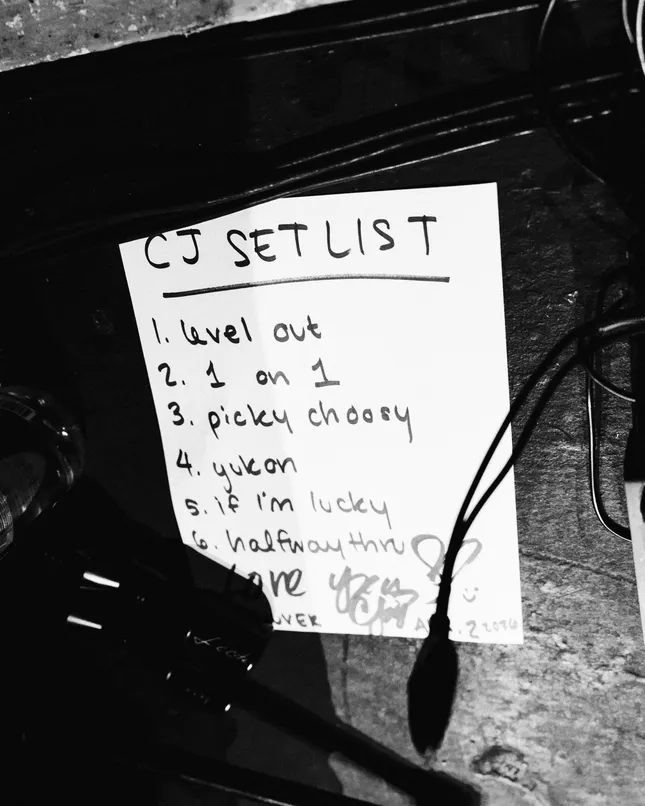 CJ SET LIST
1. level out
2. 1 on 1
3. picky choosy
4. yukon
5. if i'm lucky
6. halfway thru
Love you